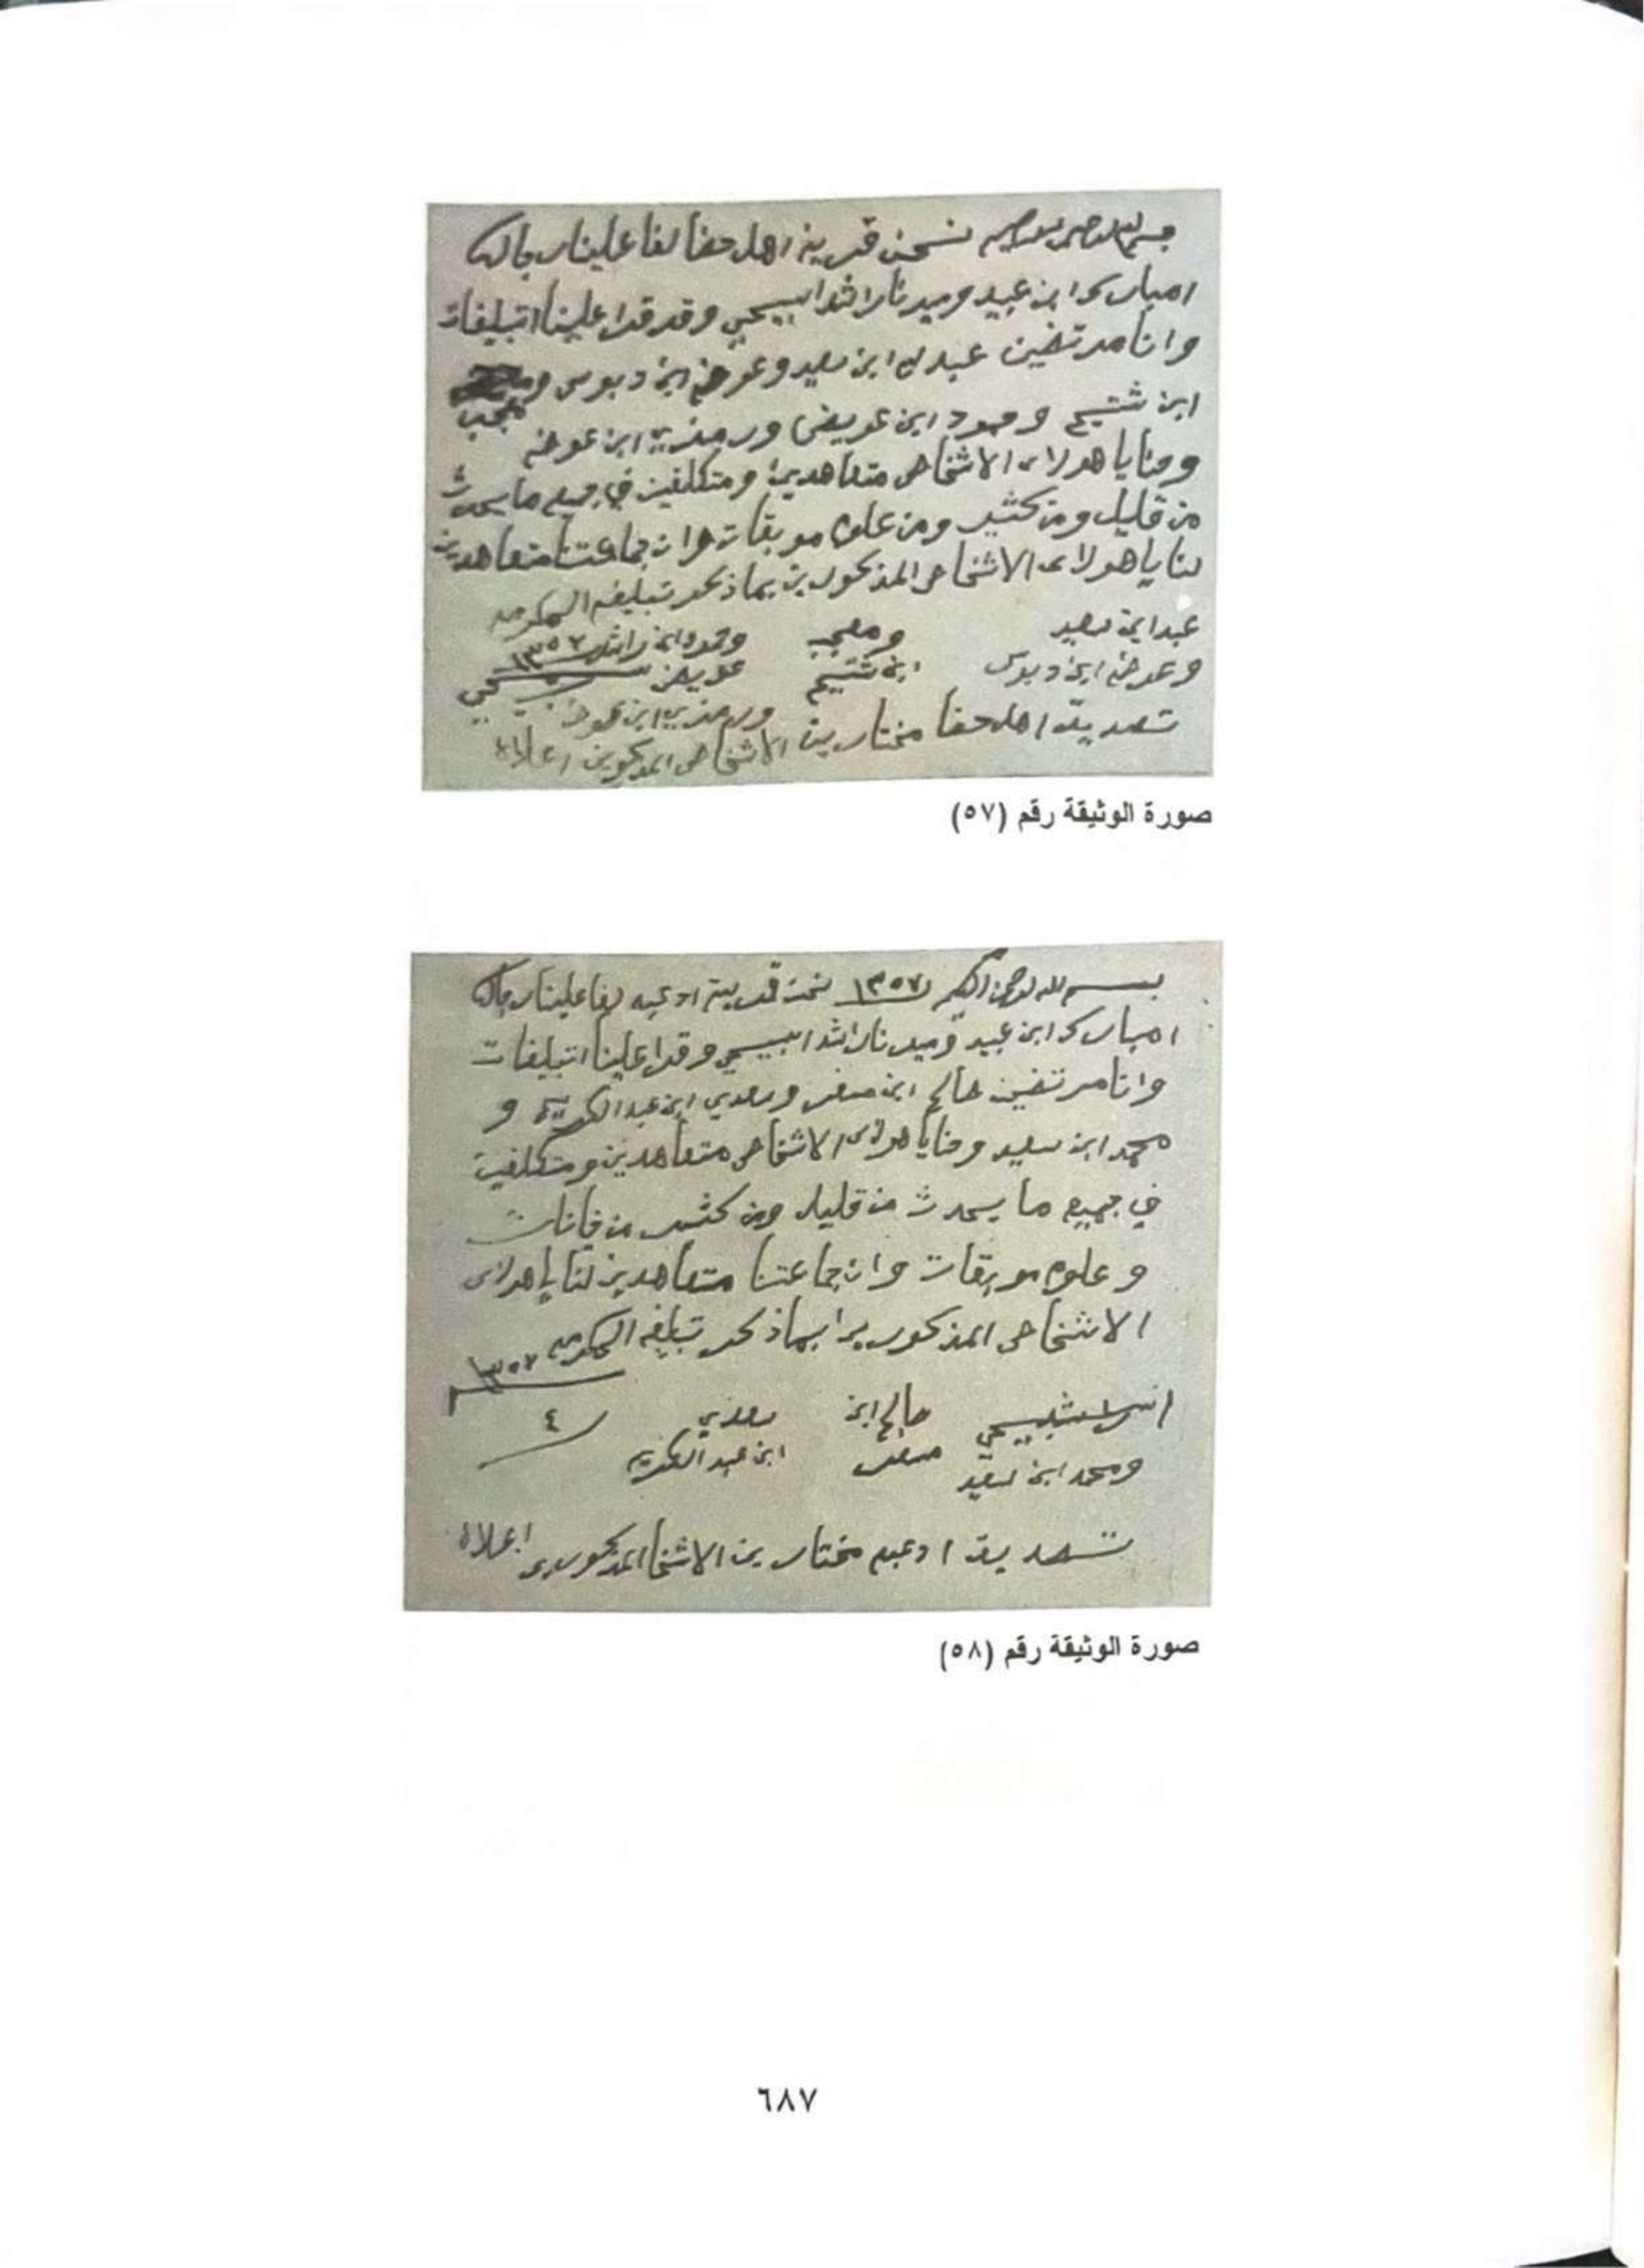 بسم الله الرحمن الرحيم نحن قرية اهل حفا لفا علينا رجال
امبارك ابن عبيد وميدنا راشد السبيحي وقد قرا علينا اتبليغات
وانا مرتضين عبدل ابن سعيد وعوض ابن دبوس و
معجب
ابن شتيح و حمود ابن عويض ورمزي ابن عوض
وحنايا هولاء الاشخاص متعاهدين ومتكلفين في جميع ما يحدث
من قليل ومن كثير ومن علوم موبقات وان جماعتنا متعاهدين
لنا يا هولاء الاشخاص المذكورين بما ذكر تبليغه الحكومه
عبد ابن سعيد ومعجب وحمود ابن راشد ١٣٥٧
وعوض ابن دبوس ابن شتيح عويض
تصديق اهل حفا مختارين ورمزي ابن عوض
الاشخاص المذكورين اعلاه
صورة الوثيقة رقم (٥٧)
بسم الله الرحمن الرحيم ١٣٥٧ نحن قرية ادعبه لفا علينا رجال
امبارك ابن عبيد وميدنا راشد السبيحي وقرا علينا اتبليغات
وانا مرتضين صالح ابن مسفر وسعدي ابن عبد الكريم و
محمد ابن سعيد وحنايا هولاء الاشخاص متعاهدين ومتكلفين
في جميع ما يحدث من قليل ومن كثير من
وعلوم موبقات وان جماعتنا متعاهدين لنا يا هولاء
الاشخاص المذكورين بما ذكر تبليغه الحكومه ١٣٥٧
صالح ابن سعدي ٤
ومحمد ابن سعيد مسفر ابن عبد الكريم
تصديق ادعبه مختارين الاشخا المذكورين اعلاه
صورة الوثيقة رقم (٥٨)
٦٨٧